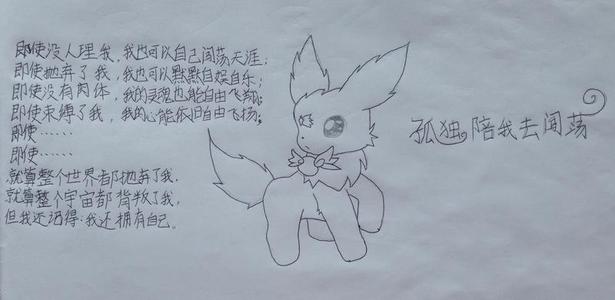 即使没人理我，我也可以自己闯荡天涯；
即使抛弃了我，我也可以默默自娱自乐；
即使没有肉体，我的灵魂也能自由飞翔；
即使束缚了我，我的心能依旧自由飞扬；
即使……
即使……
就算整个世界都抛弃了我，
就算整个宇宙都背叛了我，
但我还记得：我还拥有自己。
孤独陪我去闯荡